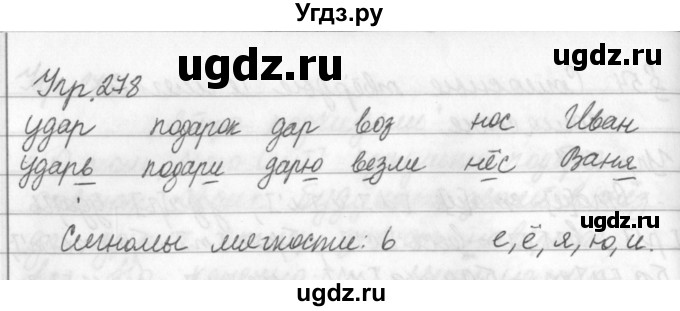 Угдз.ру
Упр. 278
ugdz.ru ugdz.ru
удар подарок дар воз нос Иван
ударь подари дарю везли нёс Ваня
Сигналы мягкости: ь е, ё, я, ю, и.
ugdz.ru